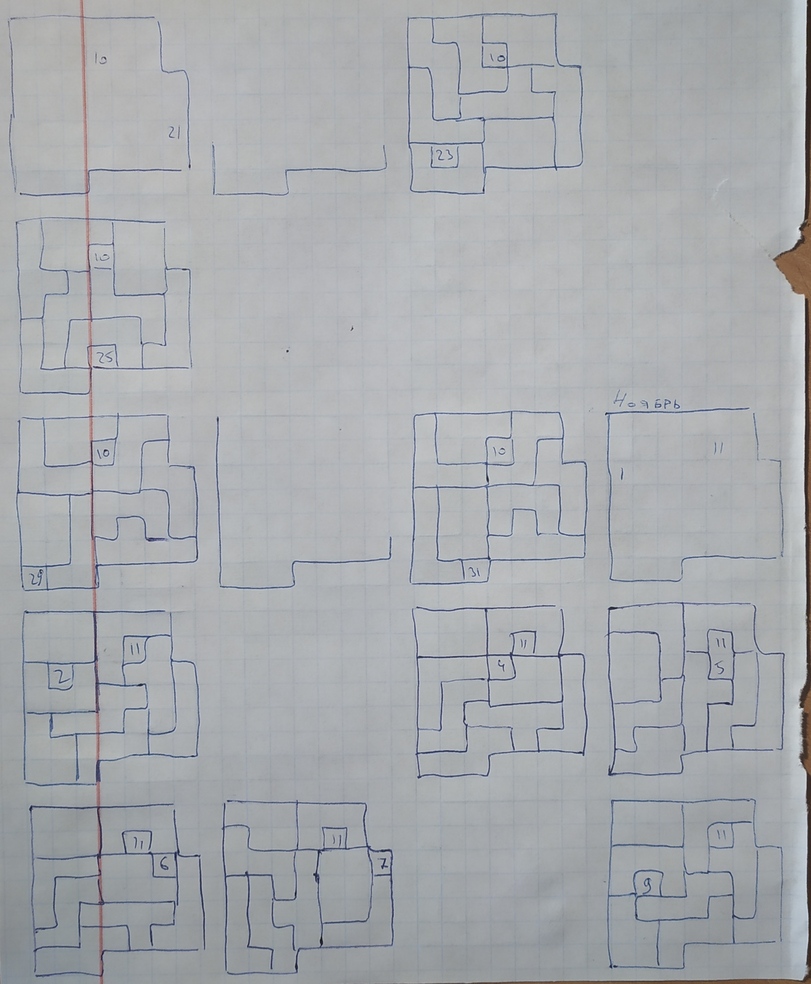 10
21
10
23
10
25
Ноябрь
10
10
11
1
29
31
11
2
11
4
11
5
11
6
11
7
11
9